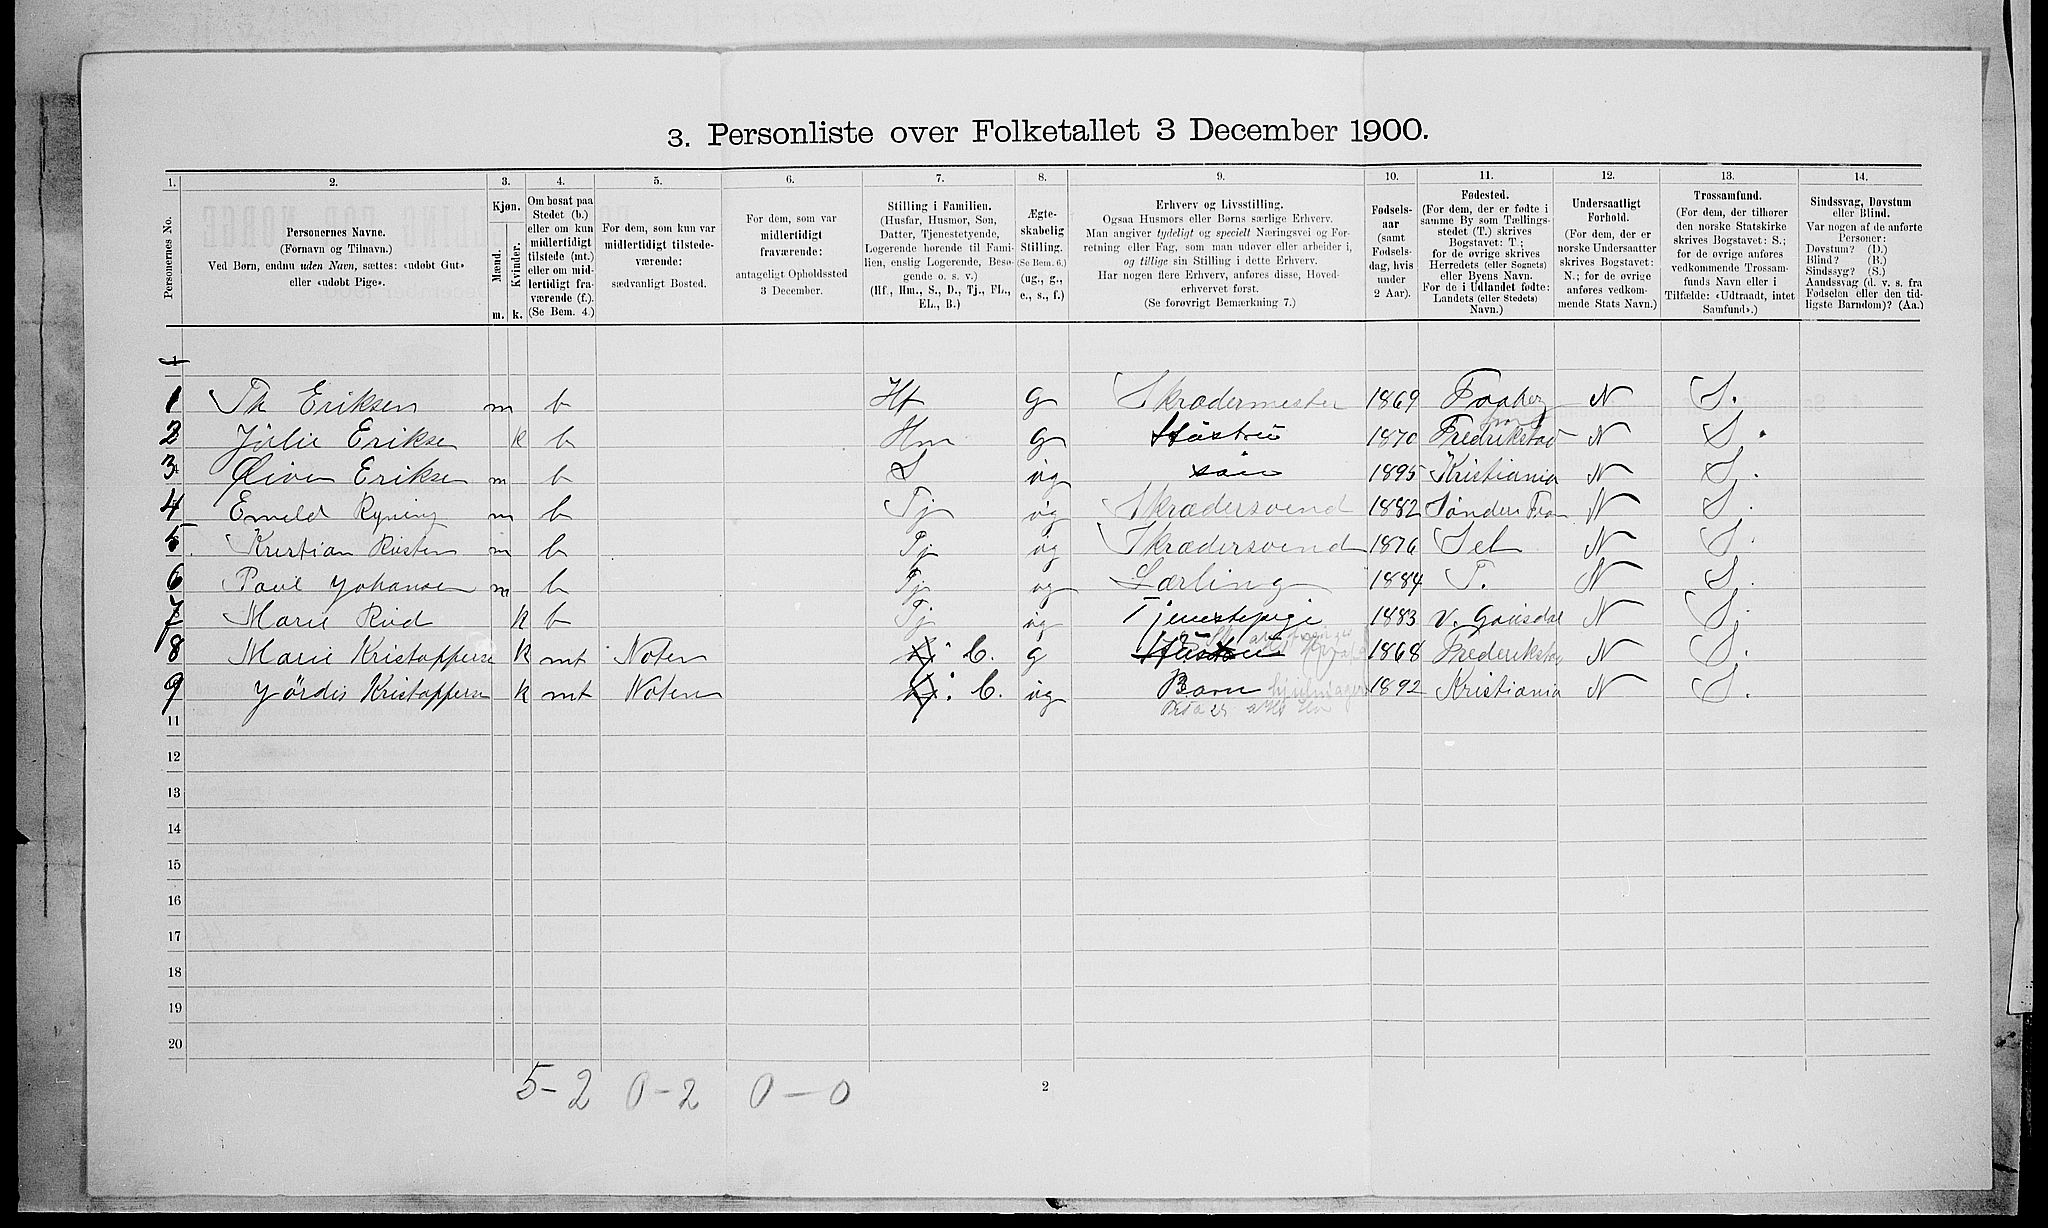 3. Personliste over Folketallet 3 December 1900.
1. 2. 3. 4. 5. 6. 7. 8. 9. 10. 11. 12. 13. 14.
Personernes No.
Personernes Navne.
(Fornavn og Tilnavn.)
Ved Børn, endnu uden Navn, sættes: «udøbt Gut»
eller «udøbt Pige».
Kjøn.
Mænd.
Kvinder.
m. k.
Om bosat paa
Stedet (b.)
eller om kun
midlertidigt
tilstede (mt.)
eller om mid-
lertidigt fra-
værende (f.).
(Se Bem. 4.)
For dem, som kun var
midlertidigt tilstede-
værende:
sædvanligt Bosted.
For dem, som var
midlertidigt
fraværende:
antageligt Opholdssted
3 December.
Stilling i Familien.
(Husfar, Husmor, Søn,
Datter, Tjenestetyende,
Logerende hørende til Fami-
lien, enslig Logerende, Besø-
gende o. s. v.)
(Hf., Hm., S., D., Tj., FL.,
EL., B.)
Ægte-
skabelig
Stilling.
(Se Bem. 6.)
(ug., g.,
e., s., f.)
Erhverv og Livsstilling.
Ogsaa Husmors eller Børns særlige Erhverv.
Man angiver tydeligt og specielt Næringsvei og For-
retning eller Fag, som man udøver eller arbeider i,
og tillige sin Stilling i dette Erhverv.
Har nogen flere Erhverv, anføres disse, Hoved-
erhvervet først.
(Se forøvrigt Bemærkning 7.)
Fødsels-
aar
(samt
Fødsels-
dag, hvis
under
2 Aar).
Fødested.
(For dem, der er fødte i
samme By som Tællings-
stedet (T.) skrives
Bogstavet: T;
for de øvrige skrives
Herredets (eller Sognets)
eller Byens Navn.
For de i Udlandet fødte:
Landets (eller Stedets)
Navn.)
Undersaatligt
Forhold.
(For dem, der er
norske Undersaatter
skrives Bogstavet:
N.; for de øvrige
anføres vedkom-
mende Stats Navn.)
Trossamfund.
(For dem, der tilhører
den norske Statskirke
skrives Bogstavet: S.;
for de øvrige anføres
vedkommende Trossam-
funds Navn eller i
Tilfælde: «Udtraadt, intet
Samfund».)
Sindssvag, Døvstum
eller Blind.
Var nogen af de anførte
Personer:
Døvstum? (D.)
Blind? (B.)
Sindssyg? (S.)
Aandssvag (d. v. s. fra
Fødselen eller den tid-
ligste Barndom)? (Aa.)
1 Th Eriksen m b Hf g Skrædermester 1869 Faaberg N S.
2 Julie Eriksen k b Hm g Hustru 1870 Fredrikstad N S.
3 Eriksen m b S ug søn 1895 Kristiania N S.
4 Ryning m b Tj ug Skrædersvend 1882 N S.
5 Kristian Rusten m b Tj ug Skrædersvend 1876 Sel N S.
6 Paul Johansen m b Tj ug Lærling 1884 T. N S.
7 Marie Rud k b Tj ug Tjenestepige 1883 V. Gausdal N S.
8 Marie Kristoffersen k mt Noten g Hustru 1868 Frederikstad N S.
9 Jørdis Kristoffersen k mt Noten ug Barn 1892 Kristiania N S.
11
12
13
14
15
16
17
18
19
20
5-2 0-2 0-0
2